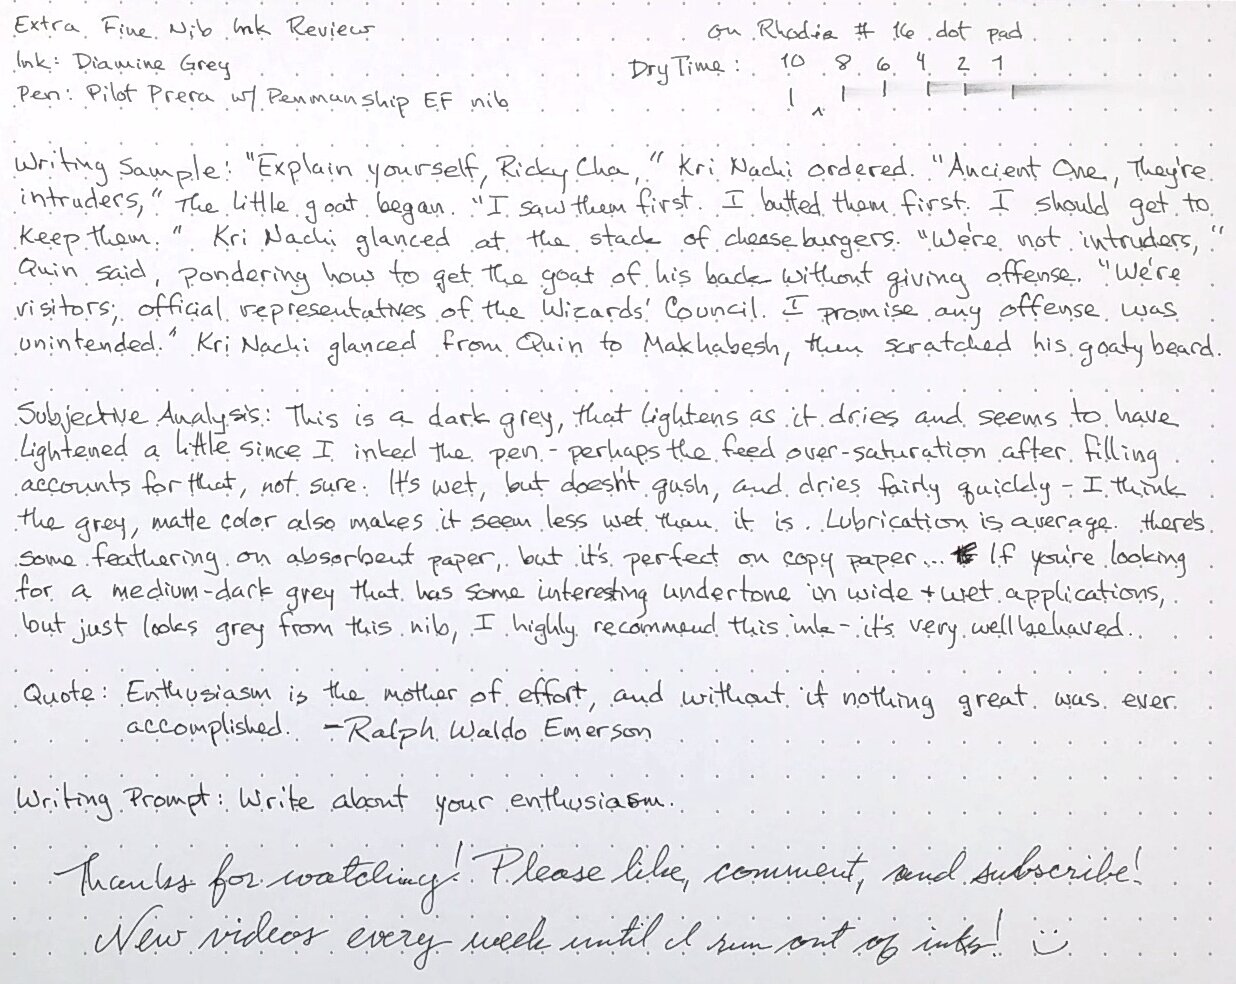 Extra Fine Nib Ink Review
on Rhodia # 16 dot pad
Ink: Diamine Grey
Dry Time: 10 8 6 4 2 1
Pen: Pilot Prera w/ Penmanship EF nib
Writing Sample: "Explain yourself, Ricky Cha," Kri Nachi ordered. "Ancient One, They're
intruders," The little goat began. "I saw them first. I butted them first. I should get to
keep them." Kri Nachi glanced at the stack of cheeseburgers. "We're not intruders,"
Quin said, pondering how to get the goat of his back without giving offense. "We're
visitors; official representatives of the Wizards' Council. I promise any offense was
unintended." Kri Nachi glanced from Quin to Makhabesh, then scratched his goaty beard.
Subjective Analysis: This is a dark grey, that lightens as it dries and seems to have
lightened a little since I inked the pen - perhaps the feed over-saturation after filling
accounts for that, not sure. It's wet, but doesn't gush, and dries fairly quickly - I think
the grey, matte color also makes it seem less wet than it is. Lubrication is average. there's
some feathering on absorbent paper, but it's perfect on copy paper... If you're looking
for a medium-dark grey that has some interesting undertone in wide + wet applications,
but just looks grey from this nib, I highly recommend this ink - it's very well behaved.
Quote: Enthusiasm is the mother of effort, and without it nothing great was ever
accomplished. - Ralph Waldo Emerson
Writing Prompt: Write about your enthusiasm.
Thanks for watching! Please like, comment, and subscribe!
New videos every week until I run out of inks! :)